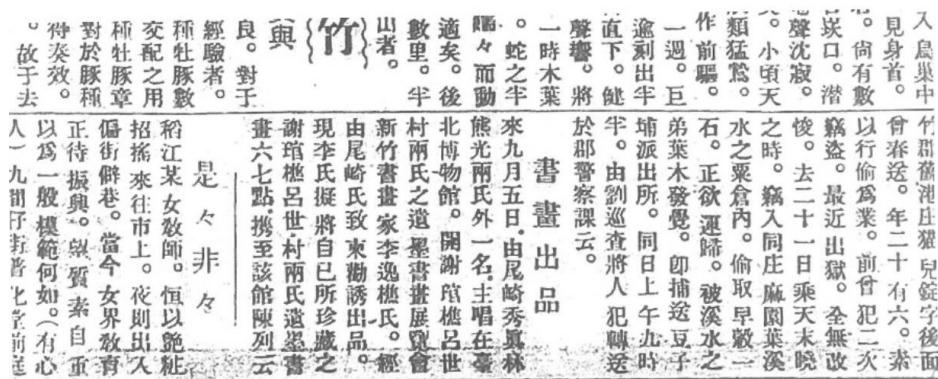 入鳥巢中
見身首。
。尙有數
崁口。潛
聲沈寂。
。小頃天
類猛鷙。
作前驅。
一週。巨
逾刻出半
直下。健
聲響。將
一時木葉
。蛇之半
而動
適矣。後
數里。半
出者。
竹
與
良。對于
經驗者。
種牡豚數
交配之用
種牡豚章
對於豚種
得奏效。
。故于去
竹郡舊港庄獾兒錠字後面
曾春送。年二十有六。素
以行偷爲業。前曾犯二次
竊盜。最近出獄。全無改
俊。去二十一日乘天未曉
之時。竊入同庄麻園葉溪
水之粟倉內。偷取早穀一
石。正欲運歸。被溪水之
弟葉木發覺。卽捕送豆子
埔派出所。同日上午九時
半。由劉巡查將人犯轉送
於郡警察課云。
書畫出品
來九月五日。由尾崎秀眞林
熊光兩氏外一名。主唱在臺
北博物館。開謝琯樵呂世
村兩氏之遺墨書畫展覽會
新竹書畫家李逸樵氏。經
由尾崎氏致柬勸誘出品。
現李氏擬將自己所珍藏之
謝琯樵呂世村兩氏遺墨書
畫六七點。携至該館陳列云
是々非々
稻江某女敎師。恒以艷粧
招搖來往市上。夜則出入
偏街僻巷。當今女界敎育
正待振興。望質素自重
以爲一般模範何如。(有心
人)九間仔街普化堂前庭